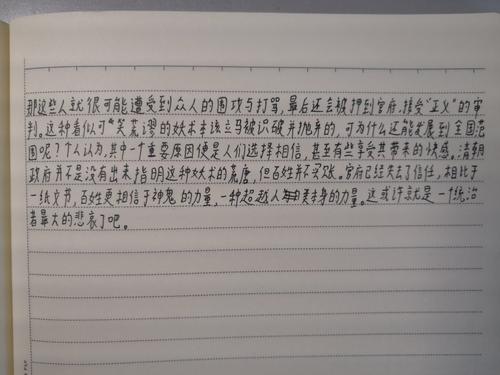 那这些人就很可能遭受到众人的围攻与打骂,最后还会被押到官府,接受“正义”的审
判。这种看似可笑荒谬的妖术本该立马被识破并抛弃的,可为什么还能发展到全国范
围呢?个人认为,其中一个重要原因便是人们选择相信,甚至有些享受其带来的快感。清朝
政府并不是没有出来指明这种妖术的荒唐,但百姓并不买账。官府已经失去了信任,相比于
一纸文书,百姓更相信于神鬼的力量,一种超越人类本身的力量。这或许就是一个统治
者最大的悲哀了吧。